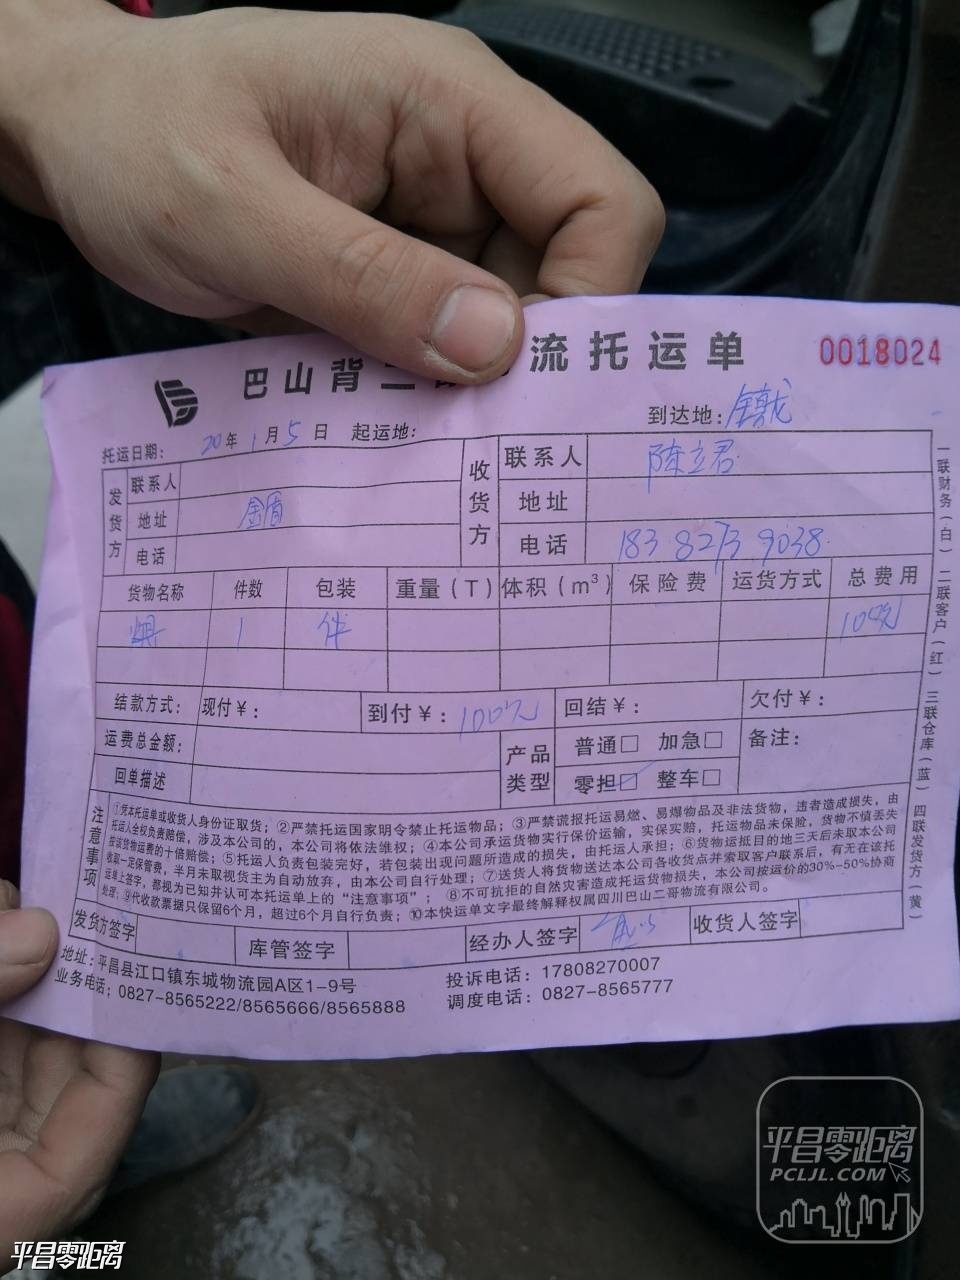 巴山背二 流托运单 0018024
托运日期: 20年1月5日 起运地: 到达地:
发货方 联系人 收货方 联系人 陈立君
地址 金盾 地址
电话 电话 18382739038
货物名称 件数 包装 重量(T) 体积(m³) 保险费 运货方式 总费用
1 件 100元
结款方式: 现付¥: 到付¥: 100元 回结¥: 欠付¥:
运费总金额: 产品类型 普通□ 加急□ 备注:
回单描述 零担□ 整车□
注意事项
①凭本托运单或收货人身份证取货;②严禁托运国家明令禁止托运物品;③严禁谎报托运易燃、易爆物品及非法货物,违者造成损失,由
托运人全权负责赔偿,涉及本公司的,本公司将依法维权;④本公司承运货物实行保价运输,实保实赔,托运物品未保险,货物不慎丢失
按该货物运费的十倍赔偿;⑤托运人负责包装完好,若包装出现问题所造成的损失,由托运人承担;⑥货物运抵目的地三天后未取本公司
收取一定保管费,半月未取视货主为自动放弃,由本公司自行处理;⑦送货人将货物送达本公司各收货点并索取客户联系后,有无在该托
运单上签字,都视为已知并认可本托运单上的“注意事项”;⑧不可抗拒的自然灾害造成托运货物损失,本公司按运价的30%-50%协商
处理;⑨代收款票据只保留6个月,超过6个月自行负责;⑩本快运单文字最终解释权属四川巴山二哥物流有限公司。
发货方签字 库管签字 经办人签字 收货人签字
地址:平昌县江口镇东城物流园A区1-9号 投诉电话:17808270007
业务电话:0827-8565222/8565666/8565888 调度电话:0827-8565777
一联财务(白) 二联客户(红) 三联仓库(蓝) 四联发货方(黄)
平昌零距离
PCLJL.COM
平昌零距离